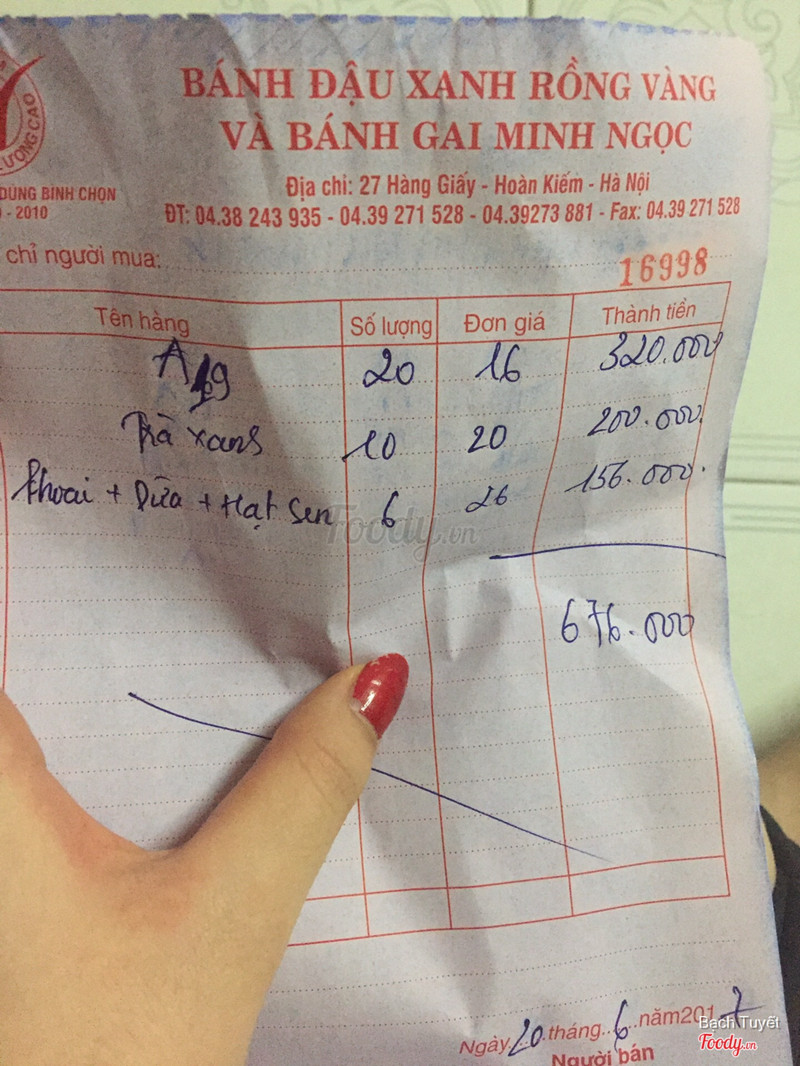 ƯỢNG CAO
DÙNG BÌNH CHỌN
- 2010
BÁNH ĐẬU XANH RỒNG VÀNG
VÀ BÁNH GAI MINH NGỌC
Địa chỉ: 27 Hàng Giấy - Hoàn Kiếm - Hà Nội
ĐT: 04.38 243 935 - 04.39 271 528 - 04.39273 881 - Fax: 04.39 271 528
chỉ người mua:
16998
Tên hàng Số lượng Đơn giá Thành tiền
A 19 20 16 320.000
Trà xanh 10 20 200.000
khoai + Dừa + Hạt sen 6 26 156.000
Foody.vn
676.000
Ngày 20 tháng 6 năm 2017
Người bán
Bạch Tuyết
Foody.vn